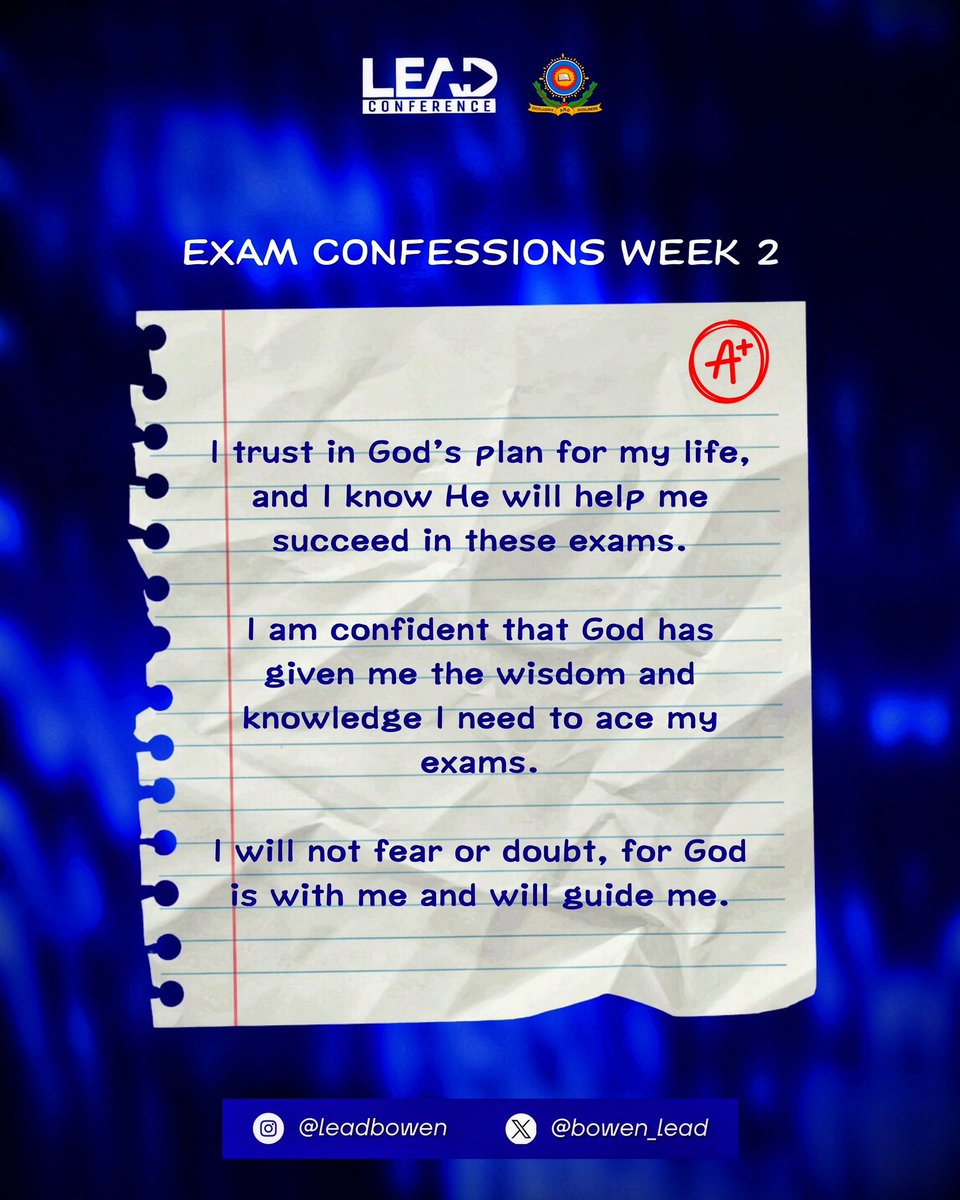 LEAD
CONFERENCE
EXCELLENCE AND GODLINESS
EXAM CONFESSIONS WEEK 2
A+
I trust in God's plan for my life,
and I know He will help me
succeed in these exams.
I am confident that God has
given me the wisdom and
knowledge I need to ace my
exams.
I will not fear or doubt, for God
is with me and will guide me.
@leadbowen
@bowen_lead